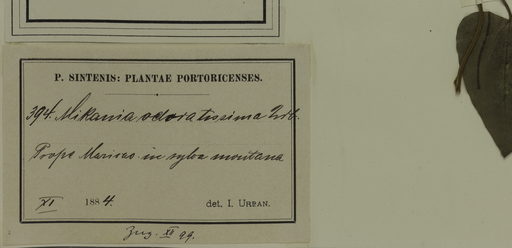 P. SINTENIS: PLANTAE PORTORICENSES.
394. Mikania odoratissima Urb.
Prope Maricao in sylva montana
XI 1884. det. I. URBAN.
Zug. XI 99.